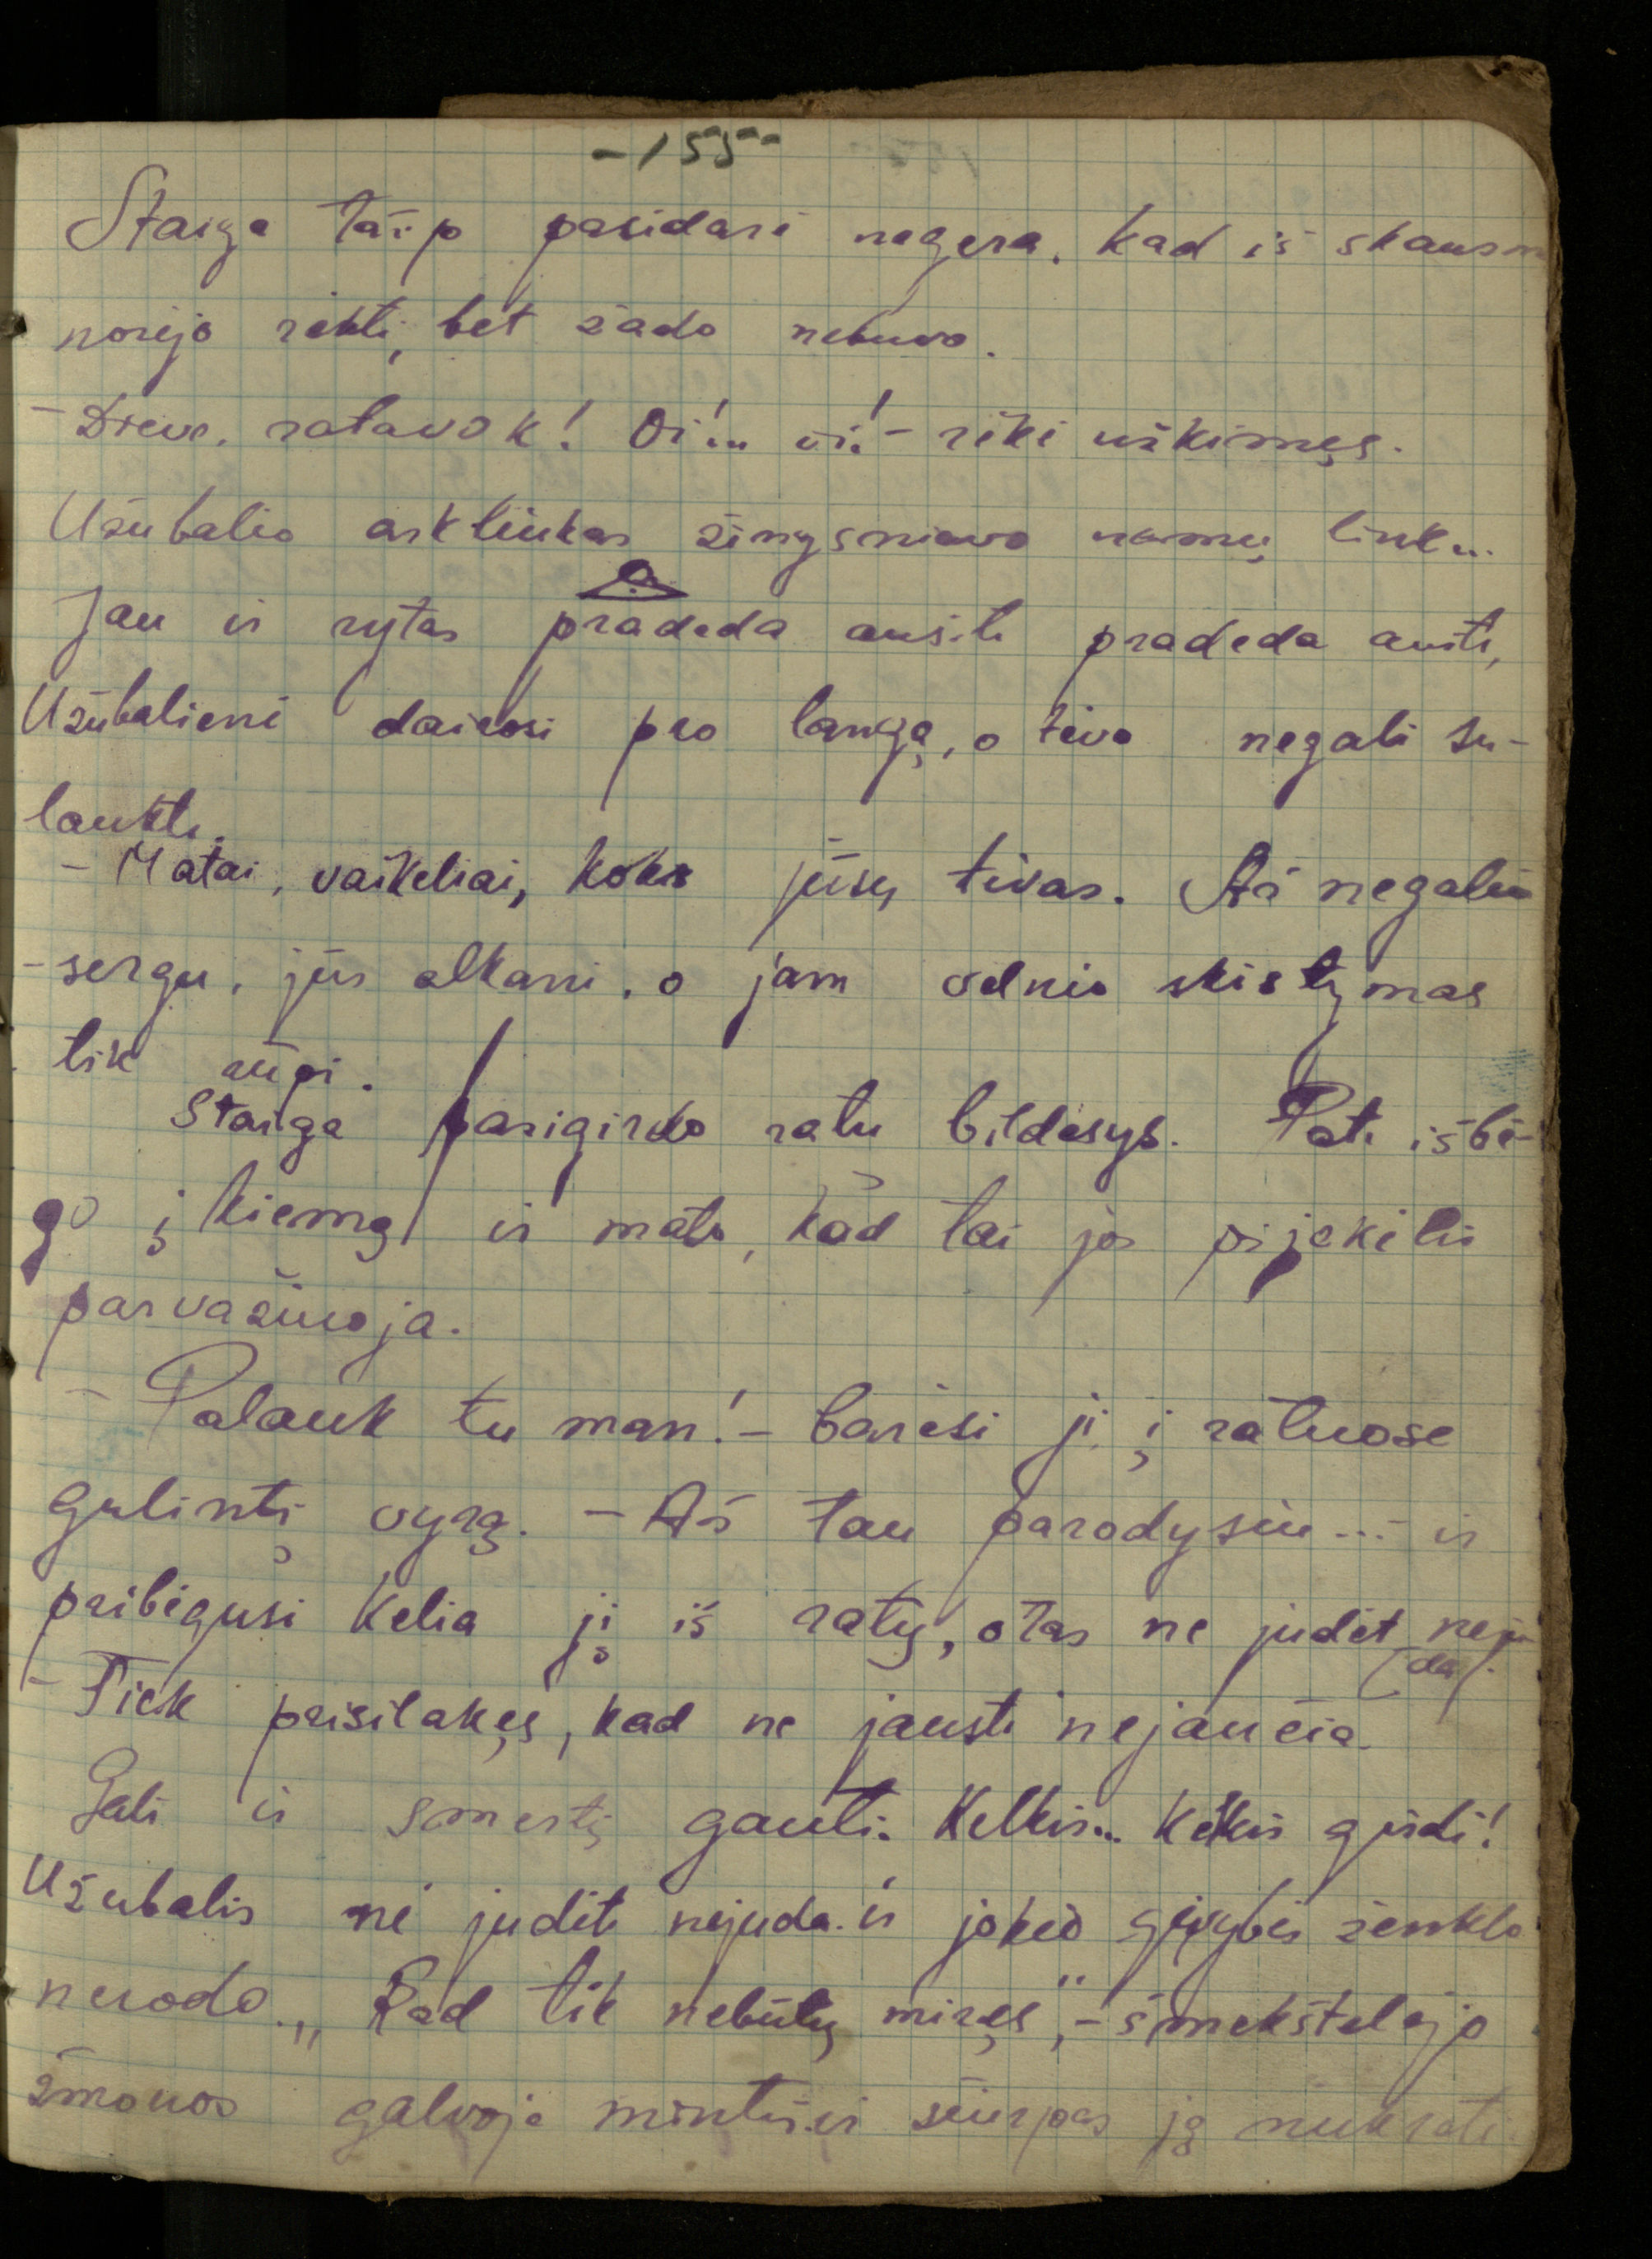 -155-
Staiga taip pasidarė negera, kad iš skausm
norėjo rėkti, bet žado nebuvo.
- Dieve, ratavok! Oi!... oi! - rėkė užkimęs.
Užubalio arkliukas žingsniavo namų link...
Jau ir rytas pradeda aušti pradeda aušti,
Užubalienė dairosi pro langą, o tėvo negali su-
laukti.
- Matai, vaikeliai, koks jūsų tėvas. Aš negaliu
- sergu, jūs alkani, o jam velnio skistymas
tik rūpi.
Staiga pasigirdo ratų bildesys. Pati išbė-
go į kiemą ir mato, kad tai jos pijokėlis
parvažiuoja.
- Palauk tu man! - barėsi ji į ratuose
gulintį vyrą. - Aš tau parodysiu... - ir
pribėgusi kelia jį iš ratų, o tas ne judėt neju
(da).
- Tiek prisilakęs, kad ne jausti nejaučia.
Gali ir smertį gauti. Kelkis... kelkis girdi!
Užubalis nė judėti nejuda ir jokio gyvybės ženklo
nerodo. „Kad tik nebūtų miręs", - šmėkštelėjo
žmonos galvoje mintis ir šiurpas ją nukratė.